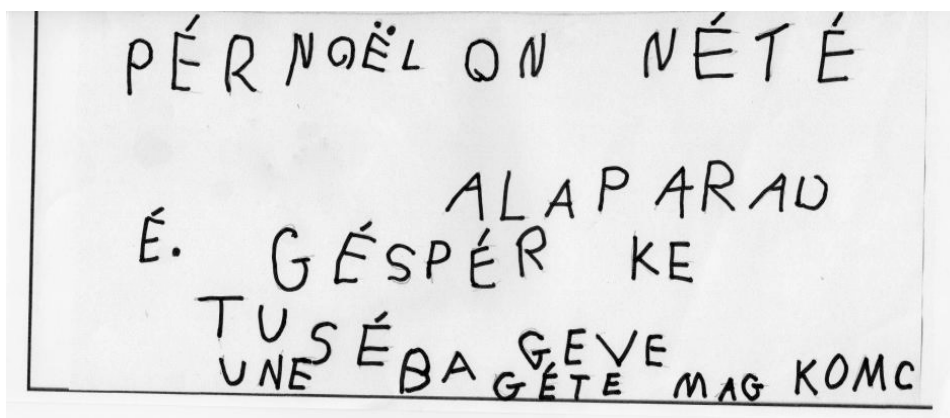 PÉR NOËL ON NÉTÉ
ALAPARAD
É. GÉSPÉR KE
TU SÉBA GEVE
UNE GÉTE MAG KOMC